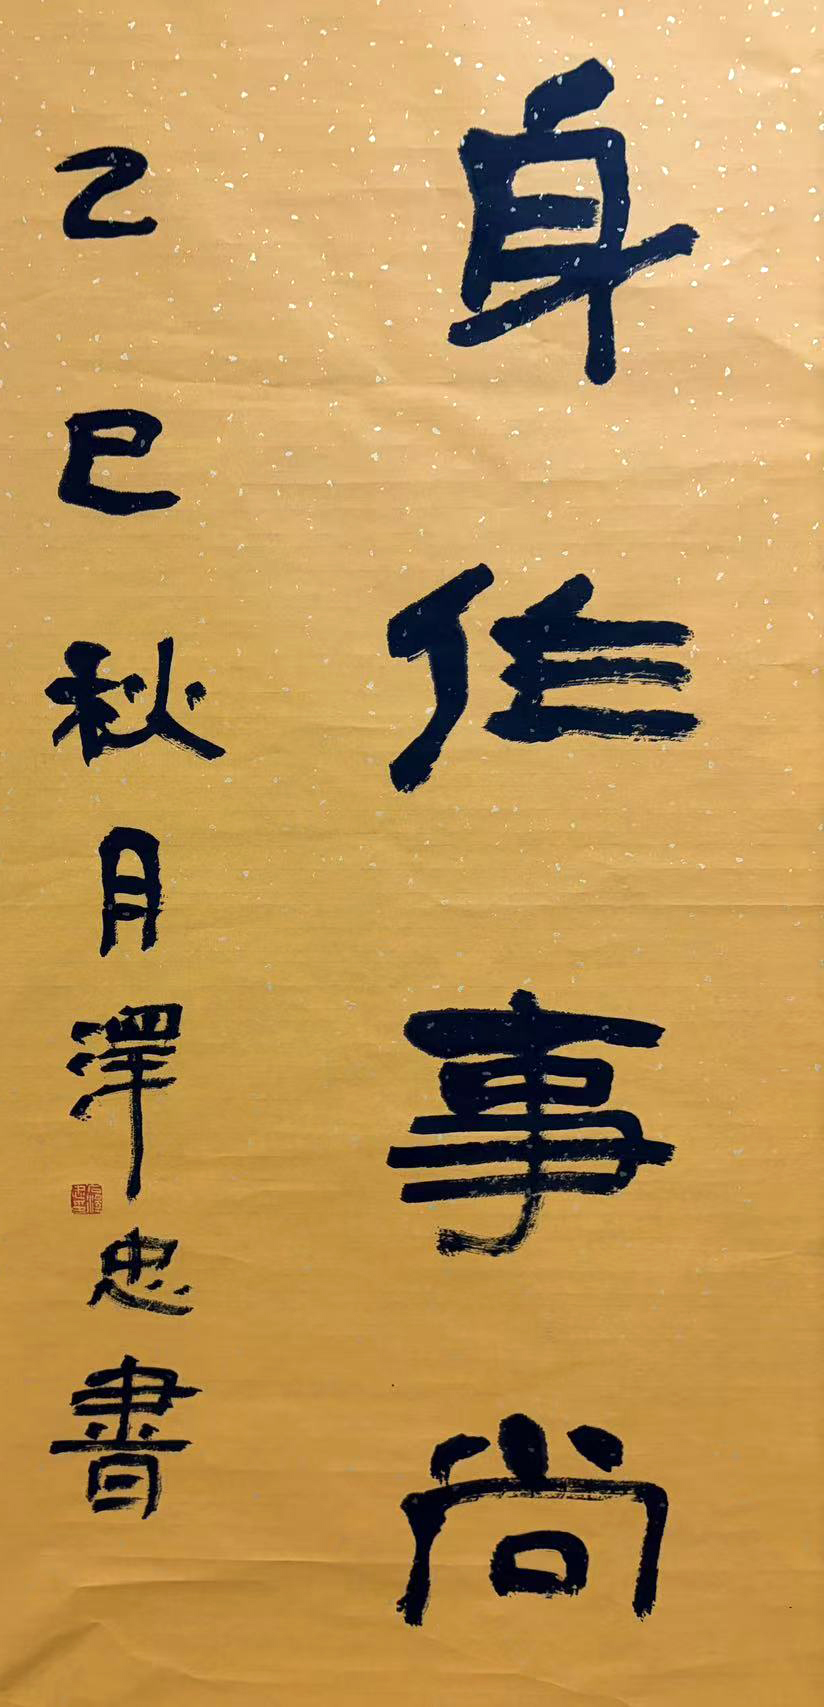 身作事尚
乙巳秋月澤忠書